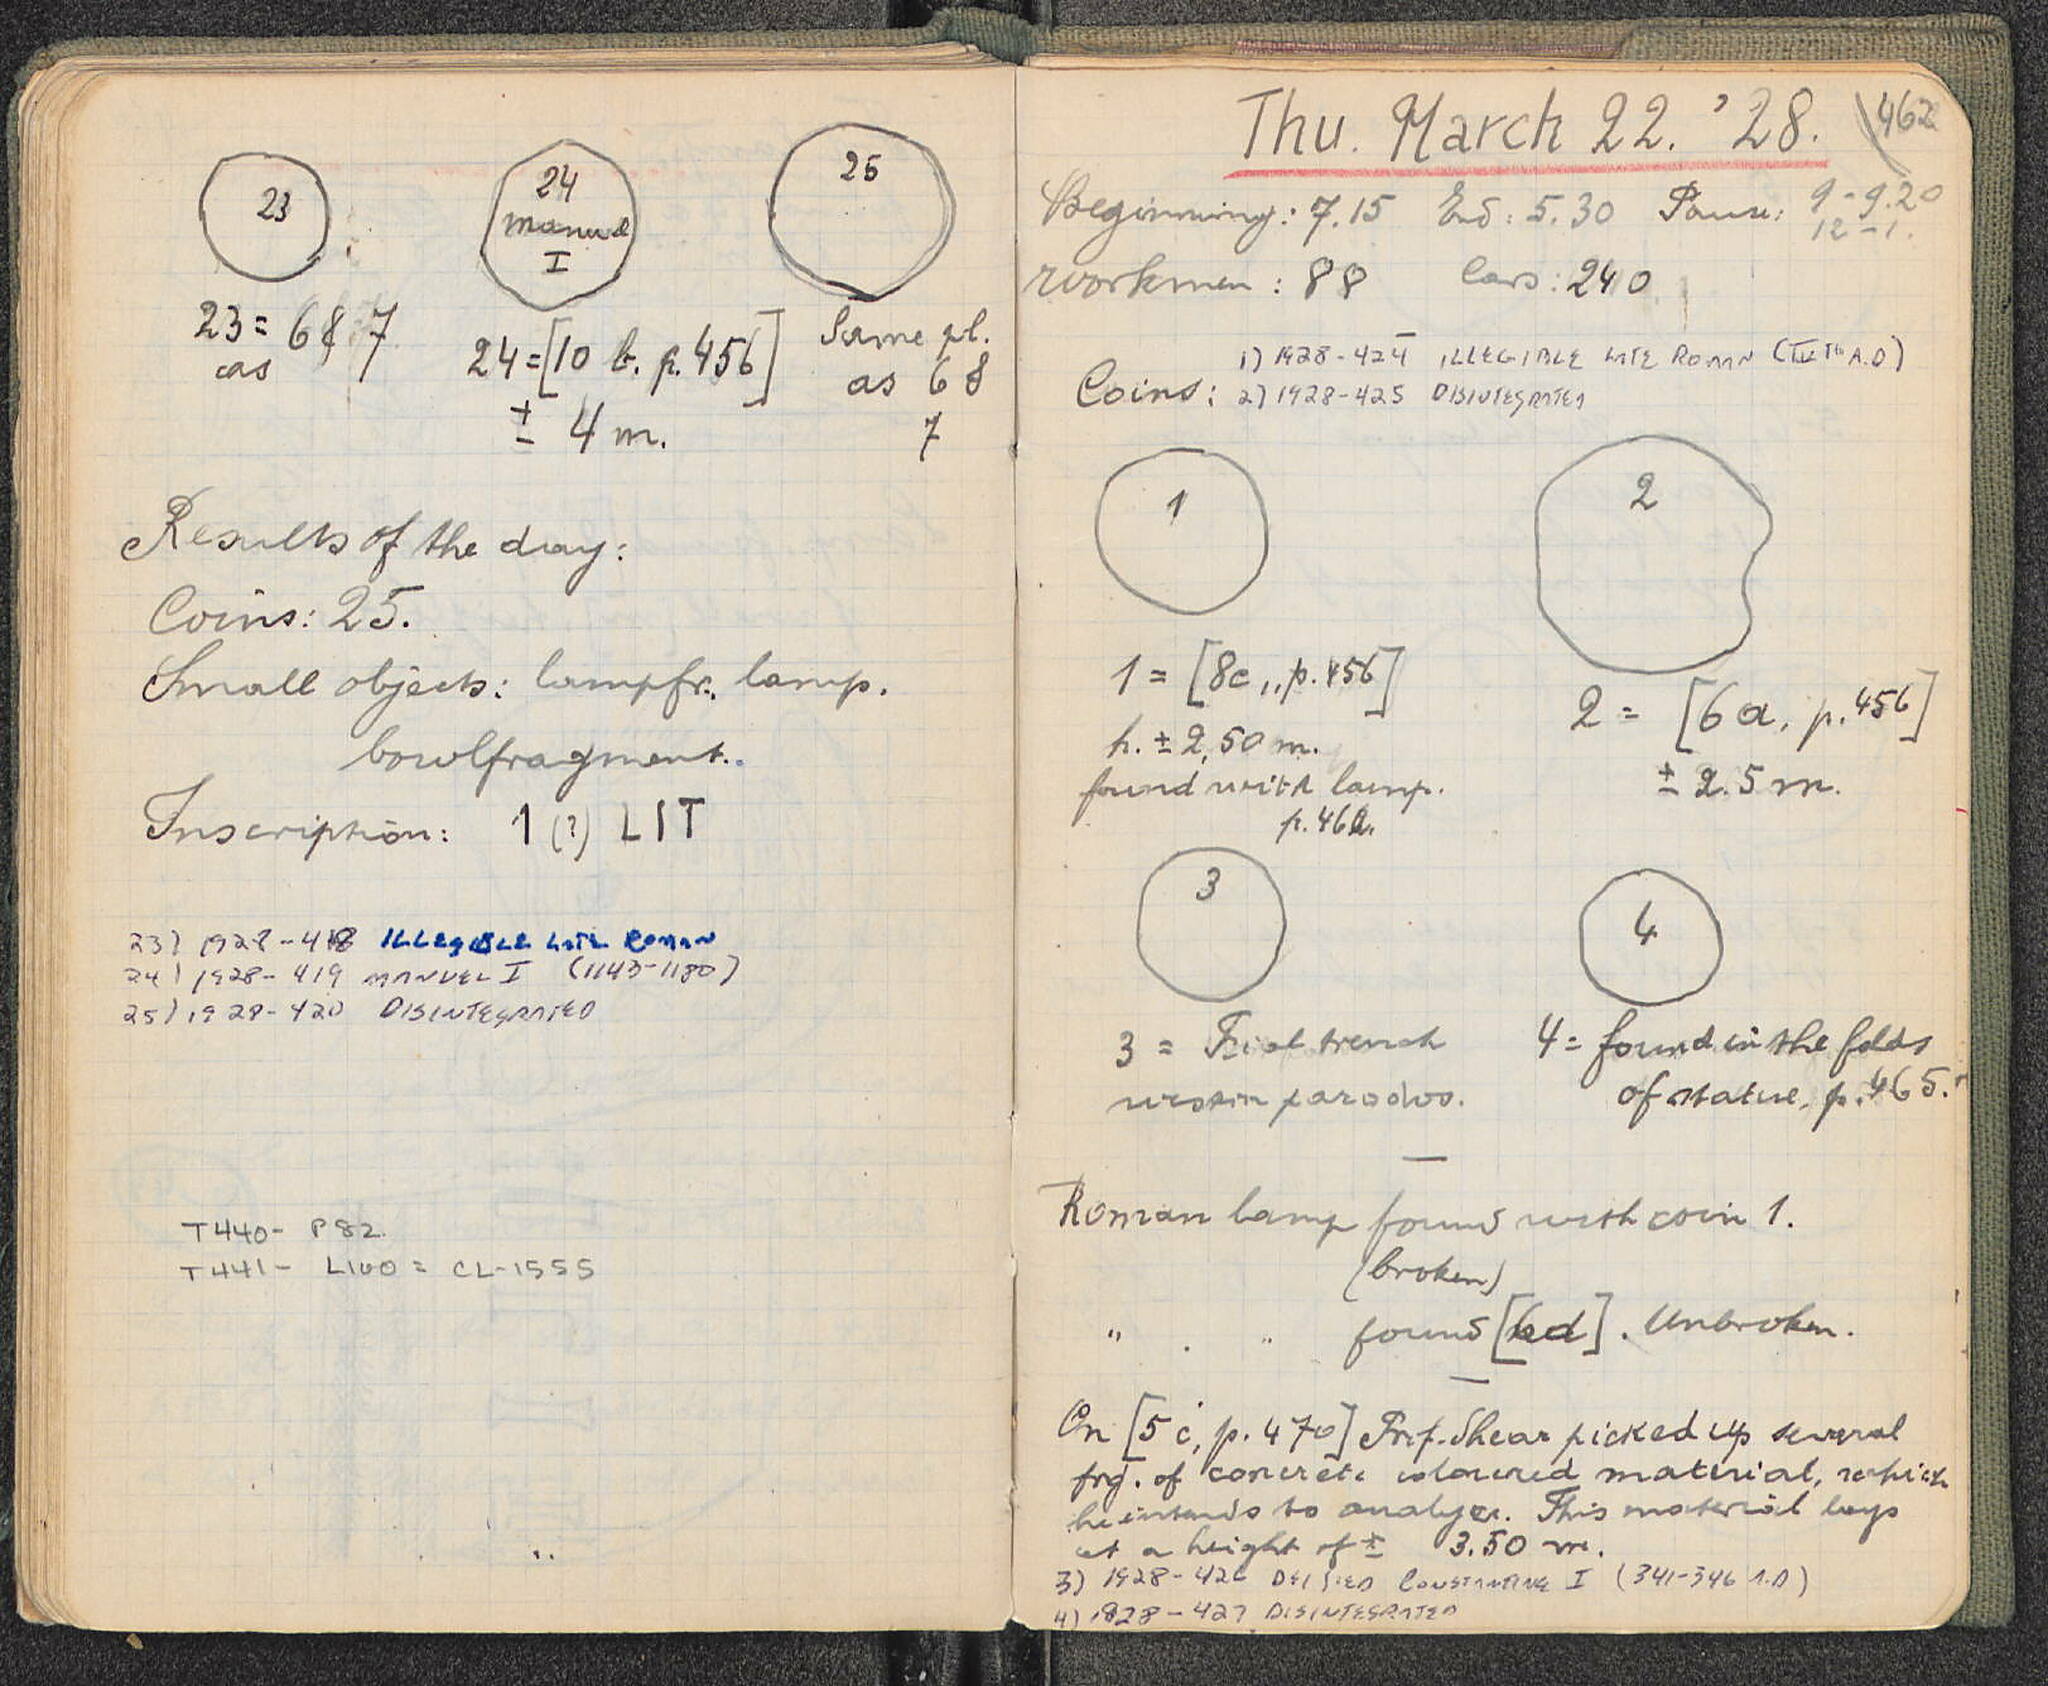 23
24
Manuel
I
25
23 = 6 & 7
as
24 = [10 b. p. 456]
± 4 m.
Same pl.
as 6 &
7
Results of the day:
Coins: 25.
Small objects: lampfr., lamp.
bowlfragment.
Inscription: 1 (?) LIT
23) 1928-418 ILLEGIBLE LATE ROMAN
24) 1928-419 MANUEL I (1143-1180)
25) 1928-420 DISINTEGRATED
T440- P82
T441- L100 = CL-1555
Thu. March 22. '28.
462
Beginning: 7.15 End: 5.30 Pause: 9-9.20
12-1.
Workmen: 88 Cars: 240
1) 1928-424 ILLEGIBLE LATE ROMAN (IVTH A.D)
Coins: 2) 1928-425 DISINTEGRATED
1
2
1 = [8c, p. 456]
h. ± 2,50 m.
found with lamp.
p. 462.
2 = [6a, p. 456]
± 2.5 m.
3
4
3 = Trial trench
western parodos.
4 = found in the folds
of statue, p. 465.
Roman lamp found with coin 1.
(broken)
" " found [6d]. Unbroken.
On [5c, p. 470] Prof. Shear picked up several
frg. of concrete coloured material, which
he intends to analyze. This material lays
at a height of ± 3.50 m.
3) 1928-426 DEIFIED CONSTANTINE I (341-346 A.D)
4) 1928-427 DISINTEGRATED